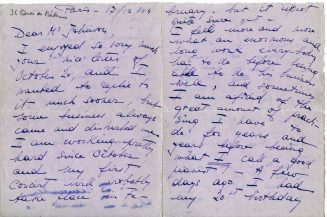 31 
Paris - 17/2/29
Dear Mr. Johnson
I enjoyed so very much
your nice letter of
October 20, and I
wanted to reply to
it much sooner but
some business always
came and disturbed me
I am working pretty
hard since October
and my first
Concert will probably
take place in Fe-
bruary - but it is not
quite sure yet -
I feel more and more
what an enormous and
long work everybody
has to do before being
able to do his business
well, and sometimes
I am afraid of the
great amount of practi-
sing I have to
do for years and
years before being
what I call a good
pianist - A few
days ago I had
my 20th birthday